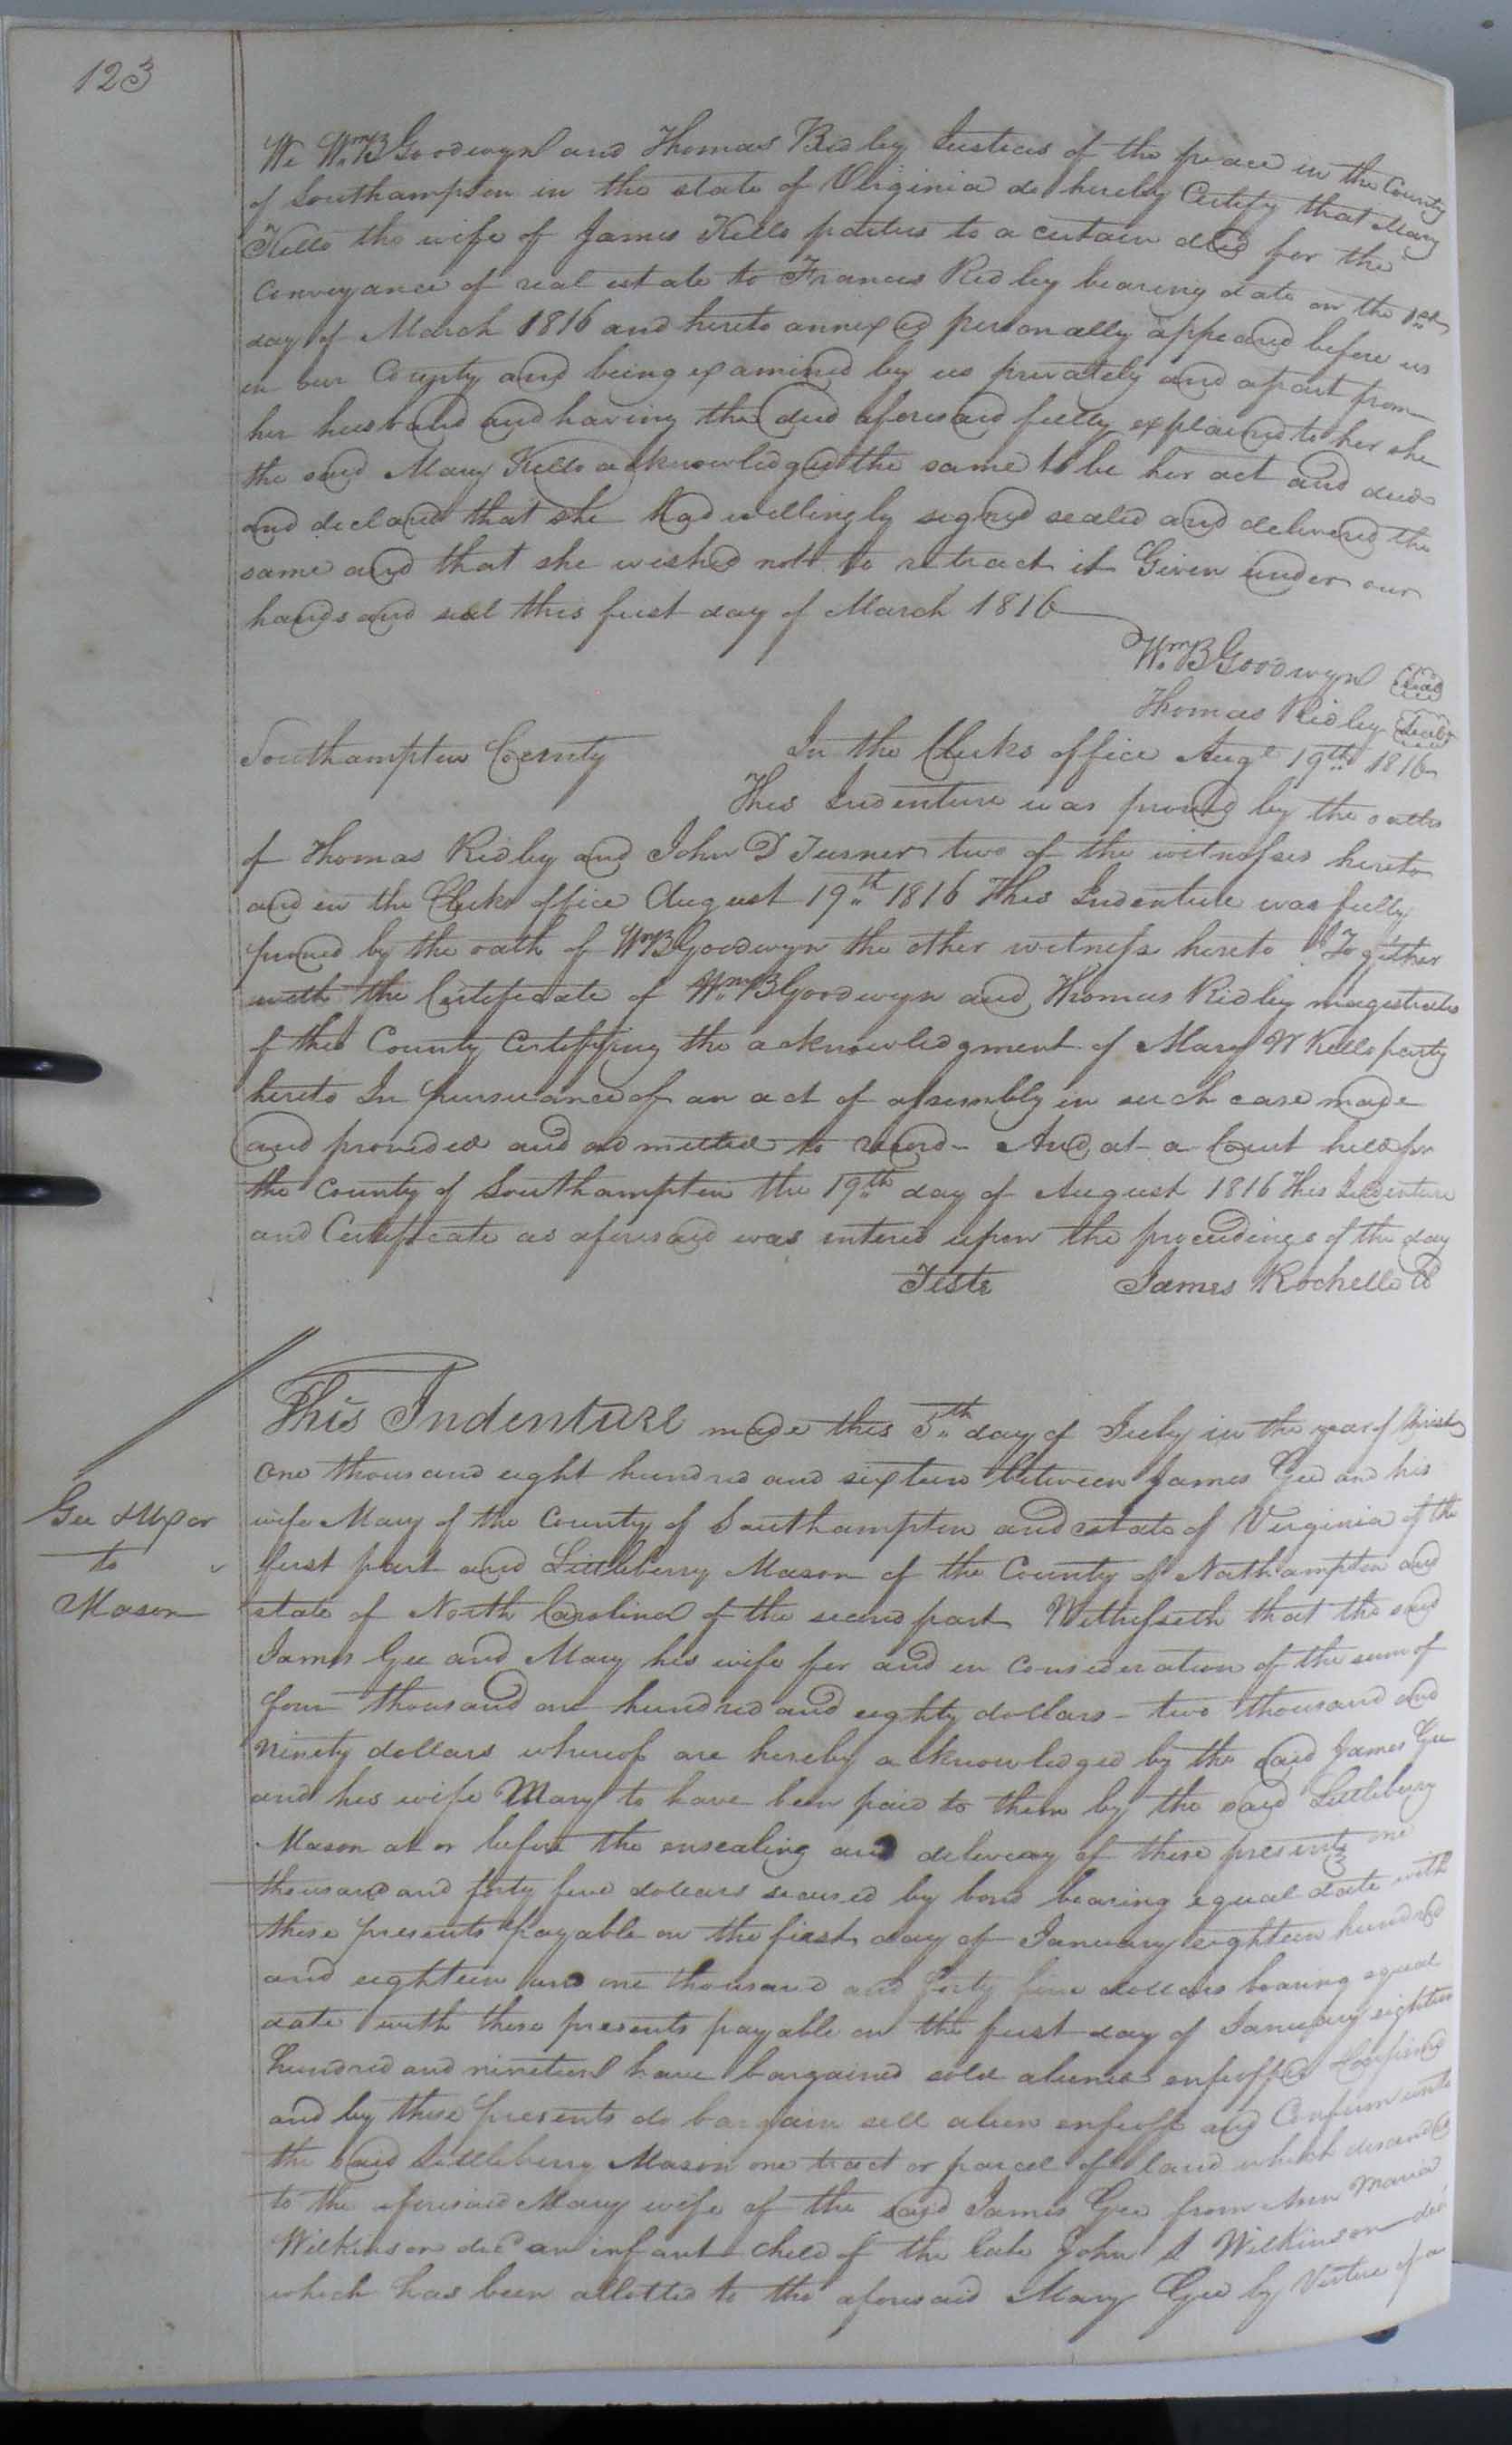 123
We Wm B Goodwyn and Thomas Ridley Justices of the peace in the County
of Southampton in the state of Virginia do hereby Certify that Mary
Kello the wife of James Kello parties to a certain deed for the
Conveyance of real estate to Frances Ridley bearing date on the 1st
day of March 1816 and hereto annexed personally appeared before us
in our County and being examined by us privately and apart from
her husband and having the deed aforesaid fully explained to her she
the said Mary Kello acknowledged the same to be her act and deed
and declared that she had willingly signed sealed and delivered the
same and that she wished not to retract it Given under our
hands and seal this first day of March 1816
Wm B Goodwyn Seal
Thomas Ridley Seal
Southampton County In the Clerks office Augt 19th 1816
This Indenture was proved by the oaths
of Thomas Ridley and John D Turner two of the witnesses hereto
and in the Clerks office August 19th 1816 This Indenture was fully
proved by the oath of Wm B Goodwyn the other witness hereto Together
with the Certificate of Wm B Goodwyn and Thomas Ridley magistrates
of this County Certifying the acknowledgment of Mary W Kello party
hereto In pursuance of an act of assembly in such case made
and provided and admitted to record - And at a Court held for
the County of Southampton the 19th day of August 1816 This Indenture
and Certificate as aforesaid was entered upon the proceedings of the day
Teste James Rochelle C
This Indenture made this 5th day of July in the year of Christ
one thousand eight hundred and sixteen between James Gee and his
Gee & Uxor
to
Mason
wife Mary of the County of Southampton and state of Virginia of the
first part and Littleberry Mason of the County of Northampton and
state of North Carolina of the second part Witnesseth that the said
James Gee and Mary his wife for and in Consideration of the sum of
four thousand one hundred and eighty dollars - two thousand and
ninety dollars whereof are hereby acknowledged by the said James Gee
and his wife Mary to have been paid to them by the said Littlebury
Mason at or before the ensealing and delivery of these presents one
thousand and forty five dollars secured by bond bearing equal date with
these presents payable on the first day of January eighteen hundred
and eighteen and one thousand and forty five dollars bearing equal
date with these presents payable on the first day of January eighteen
hundred and nineteen have bargained sold aliened enfeoffed & confirmed
and by these presents do bargain sell alien enfeoff and Confirm unto
the said Littleberry Mason one tract or parcel of land which descended
to the aforesaid Mary wife of the said James Gee from Ann Maria
Wilkinson decd an infant child of the late John S Wilkinson decd
which has been allotted to the aforesaid Mary Gee by Virtue of a